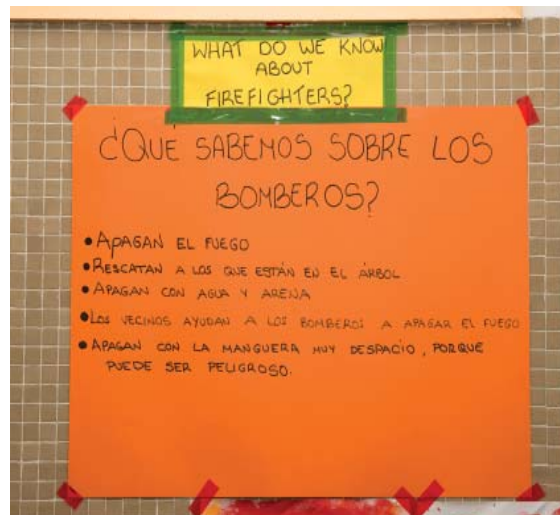 WHAT DO WE KNOW
ABOUT
FIREFIGHTERS?
¿QUÉ SABEMOS SOBRE LOS
BOMBEROS?
• APAGAN EL FUEGO
• RESCATAN A LOS QUE ESTÁN EN EL ÁRBOL
• APAGAN CON AGUA Y ARENA
• LOS VECINOS AYUDAN A LOS BOMBEROS A APAGAR EL FUEGO
• APAGAN CON LA MANGUERA MUY DESPACIO, PORQUE
PUEDE SER PELIGROSO.